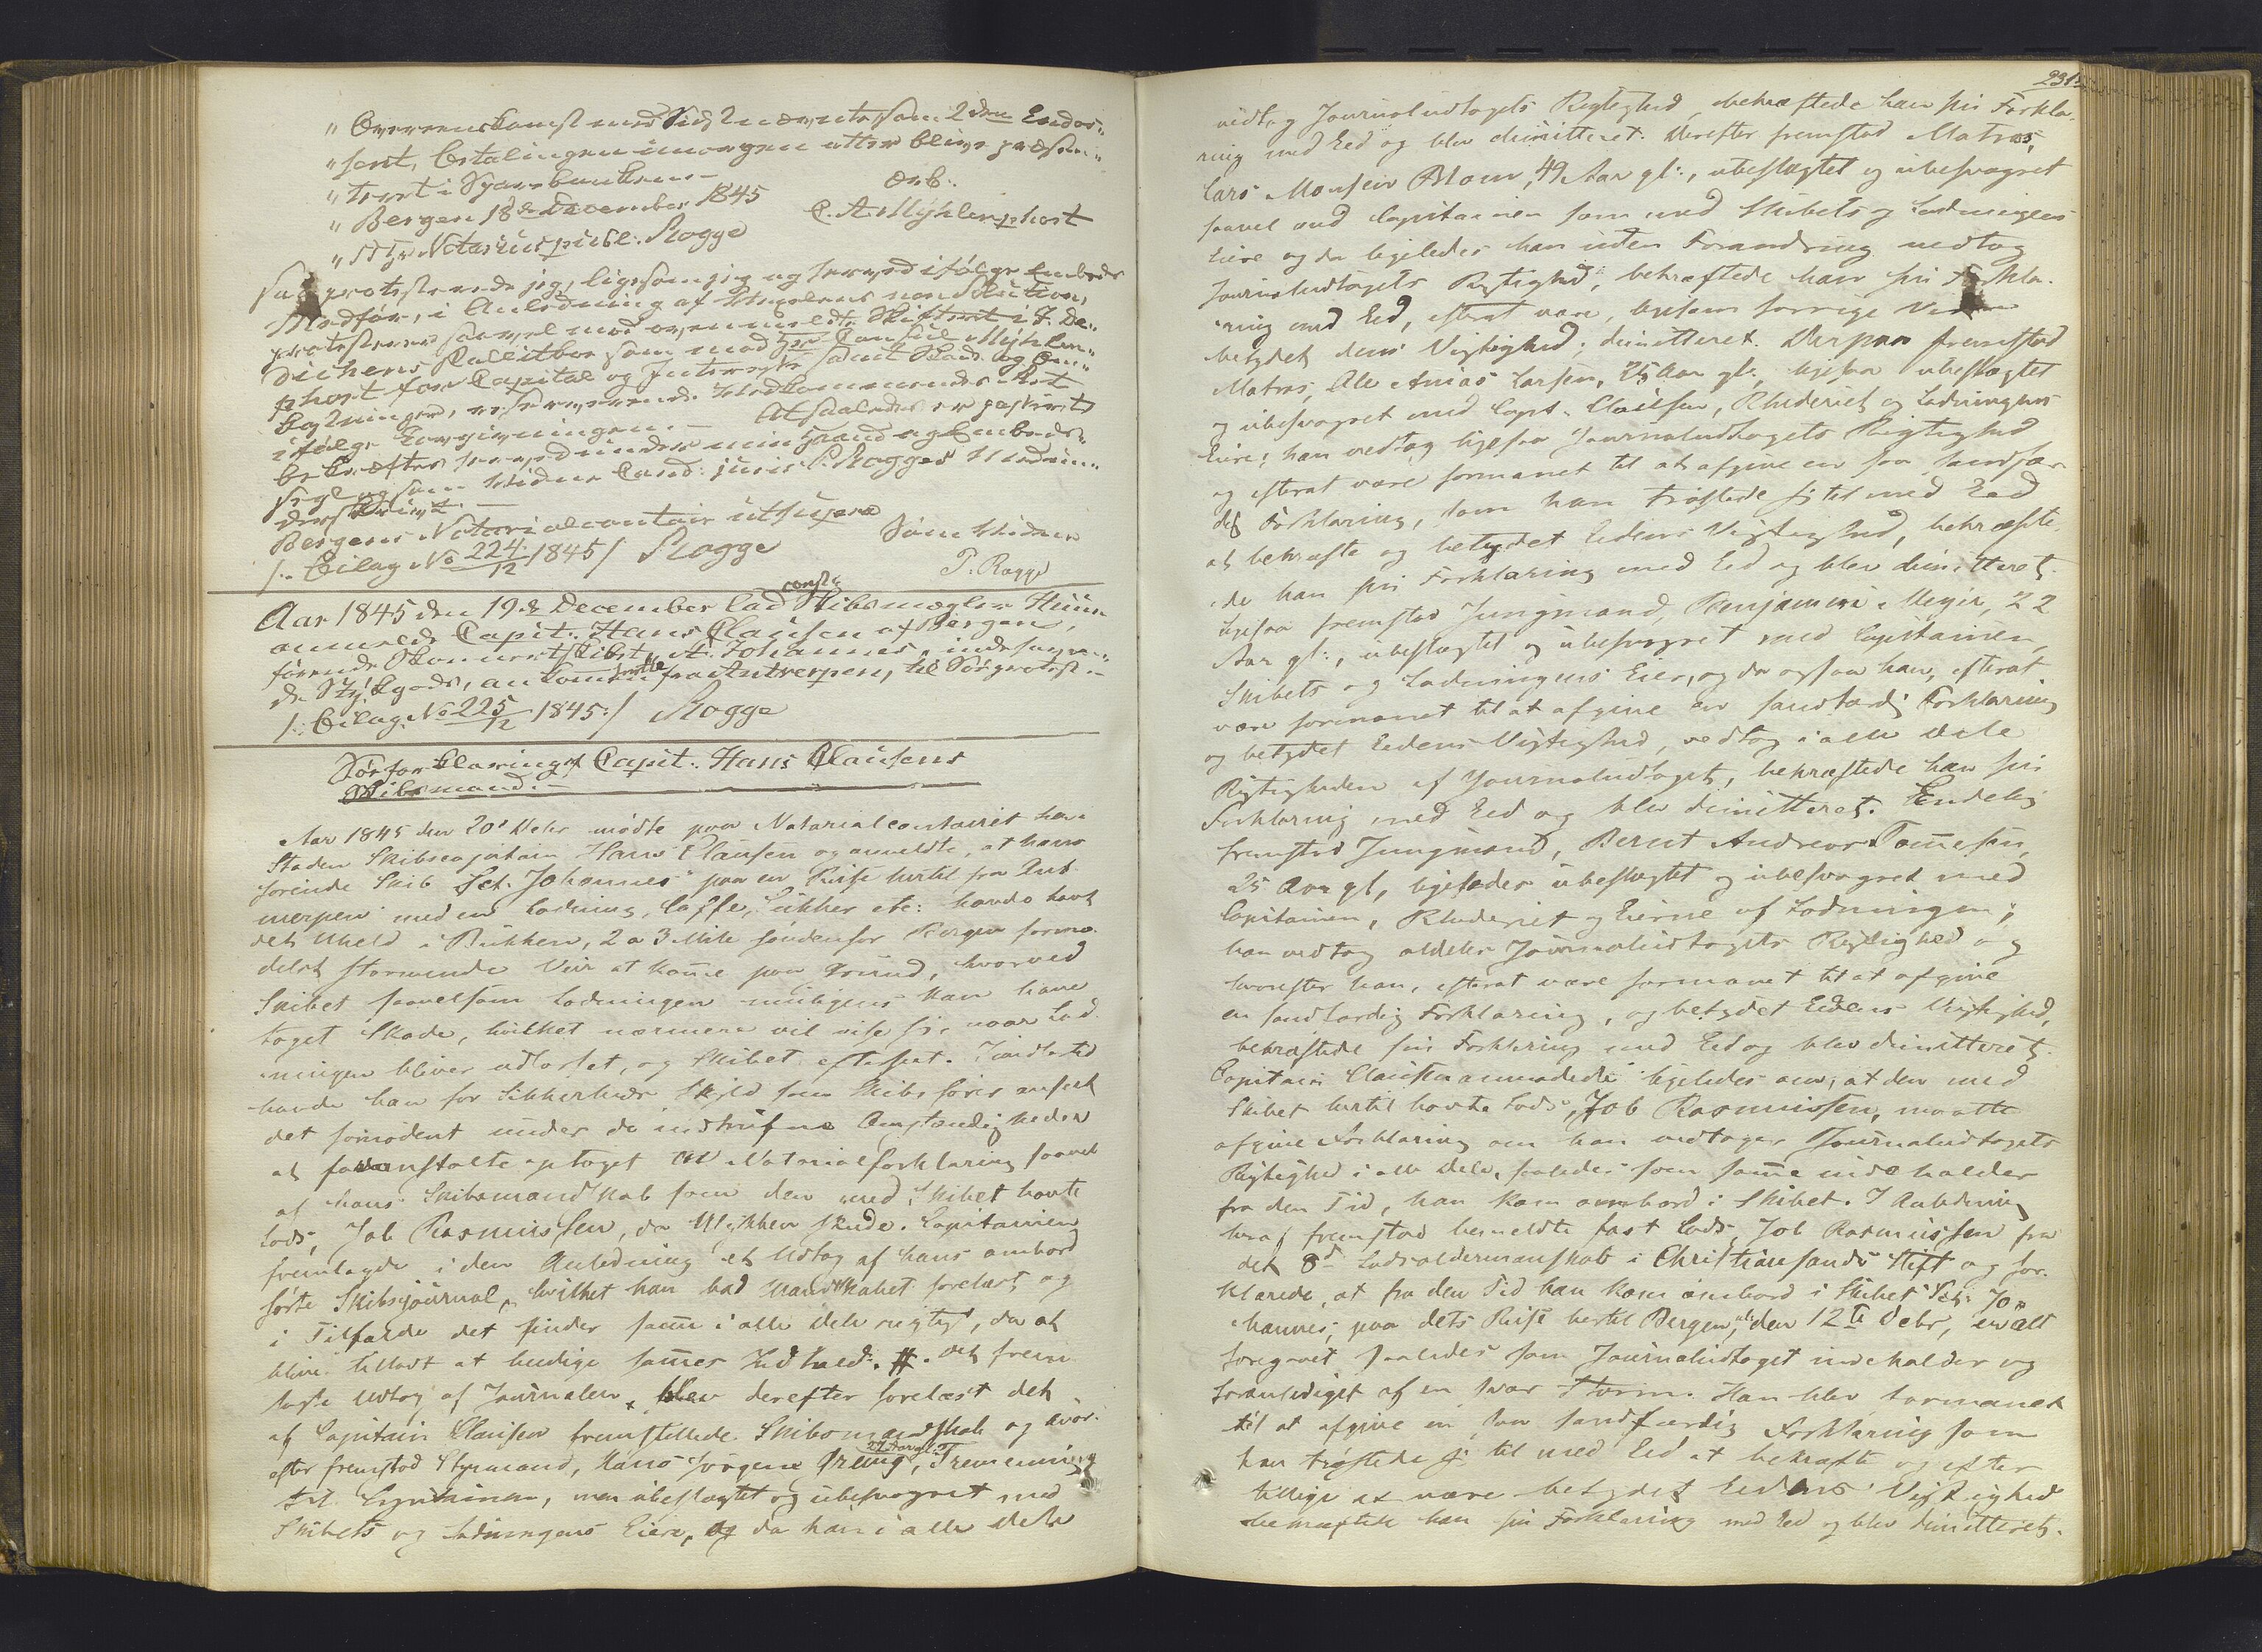 " Overeenskomst med Sidstnævnte som 2den Endos-
" sent, Betalingen imorgen atter blive præsen-
" teret i Sparebanken.-
" Bergen 18de December 1845 ærb.
" Til Notarius publ: Rogge C. A. Mÿhlenphort
saa protesterede jeg, ligesom jeg og herved ifølge Embeds
Medfør, i Anledning af Vexelens non Solution,
protesterer saavel mod ovenmeldte J. De-
dichens Fallitboe som mod Herr Consul Mÿhlen-
phort for Capital og Interesse samt Skade og Om-
kostninger, reserverende Vedkommendes Ret
ifølge Lovgivningen.- At saaledes er passeret
bekræftes herved under min Haand og Embeds-
segl og som Vidne Cand: juris P. Rogges Under-
derskrivt.-
Bergens Notarialcontoir ut supra
/:. Bilag No 224/12 1845/ Rogge Som Vidne
P. Rogge
Aar 1845 den 19de December lod const: Skibsmægler
anmelde Capit: Hans Clausen af Bergen,
førende Skonnertskibet St. Johannes, indehaven-
de Stÿkgods, ankommen hertil fra Antverpen, til Søeprotest.-
/: Bilag No 225/12 1845:/ Rogge
Søeforklaring af Capit: Hans Clausens
Skibsmand.-
Aar 1845 den 20de Debr mødte paa Notarialcontoiret her i
Staden Skibscapitain Hans Clausen og anmeldte, at hans
førende Skib "Sct. Johannes" paa en Reise hertil fra Ant-
werpen med en Ladning, Caffe, Sukker etc: havde havt
det Uheld i Bukken, 2 a 3 Mile søndenfor Bergen forme-
delst stormende Veir at komme paa Grund, hvorved
Skibet saavelsom Ladningen muligens kan have
taget Skade, hvilket nærmere vil vise sig, naar Lad-
ningen bliver udlosset, og Skibet efterseet. Imidlertid
havde han for Sikkerheds Skyld som Skibsfører anseet
det fornødent under de indtrufne Omstændigheder
at foranstalte optaget en Notarialforklaring saavel
af hans Skibsmandskab som den med Skibet havte
Lods, Job Rasmussen, da Ulykken skede. Capitainen
fremlagde i den Anledning et Udtog af hans ombord
førte Skibsjournal, hvilket han bad Mandskabet forelæst, og
i Tilfælde det finder samme i alle Dele rigtigt, da at
blive tilladt at beedige sammes Indhold. #. Det frem-
lagte Udtog af Journalen, blev derefter forelæst det
af Capitain Clausen fremstillede Skibsmandskab og hvor-
efter fremstod Styrmand, Hans Jørgen Greug, 27 Aar gl: Fremmening
til Capitainen, men ubeslægtet og ubesvogret med
Skibets og Ladningens Eiere, og da han i alle Dele
231.
vedtog Journaludtogets Rigtighed, bekræftede han sin Forkla-
ring med Eed og blev dimitteret. Derefter fremstod Matros,
Lars Monsen Blom, 49 Aar gl:, ubeslægtet og ubesvogret
saavel med Capitainen som med Skibets og Ladningens
Eiere og da ligeledes han uden Forandring vedtog
Journaludtogets Rigtighed, bekræftede han sin Forkla-
ring med Eed, efterat være, ligesom forrige
betydet dens Vigtighed; dimitteret. Derpaa fremstod
Matros, Ole Anias Larsen, 25 Aar gl:, ligesaa ubeslægtet
og ubesvogret med Capt: Clausen, Rhederiet og Ladningens
Eiere; han vedtog ligesaa Journaludtogets Rigtighed
og efterat være formanet til at afgive en saa sandfær-
dig Forklaring, som han trøstede sig til med Eed
at bekræfte og betydet Eedens Vigtighed, bekræfte-
de han sin Forklaring med Eed og blev dimitteret.
Ligesaa fremstod Jungmand, Benjamin Meyer, 22
Aar gl:, ubeslægtet og ubesvogret med Capitainen,
Skibets og Ladningens Eier, og da ogsaa han, efterat
være formanet til at afgive en sandfærdig Forklaring
og betydet Eedens Vigtighed, vedtog i alle Dele
Rigtigheden af Journaludtoget, bekræftede han sin
Forklaring med Eed og blev dimitteret. Endelig
fremstod Jungmand, Bernt Andreas Tomesen,
25 Aar gl, ligeledes ubeslægtet og ubesvogret med
Capitainen, Rhederiet og Eierne af Ladningen;
han vedtog aldeles Journaludtogets Rigtighed og
hvorefter han, efterat være formanet til at afgive
en sandfærdig Forklaring, og betydet Eedens Vigtighed,
bekræftede sin Forklaring med Eed og blev dimitteret.
Capitain Clausen anmodede ligeledes om, at den med
Skibet hertil havte Lods, Job Rasmussen, maatte
afgive Forklaring om han vedtager Journaludtogets
Rigtighed i alle Dele, saaledes som samme indeholder
fra den Tid, han kom ombord i Skibet. I Anledning
heraf fremstod bemeldte fast Lods, Job Rasmussen fra
det 8de Lodsoldermanskab i Christiansands Stift og for-
klarede, at fra den Tid han kom ombord i Skibet "Sct: Jo-
hannes, paa dets Reise hertil Bergen, den 12te Debr, er Alt
foregaaet saaledes som Journaludtoget indeholder og
foranlediget af en svær Storm. Han blev formanet
til at afgive en saa sandfærdig Forklaring som
han trøstede sig til med Eed at bekræfte og efter
tillige at være betydet Eedens Vigtighed
bekræftede han sin Forklaring med Eed og blev dimitteret.